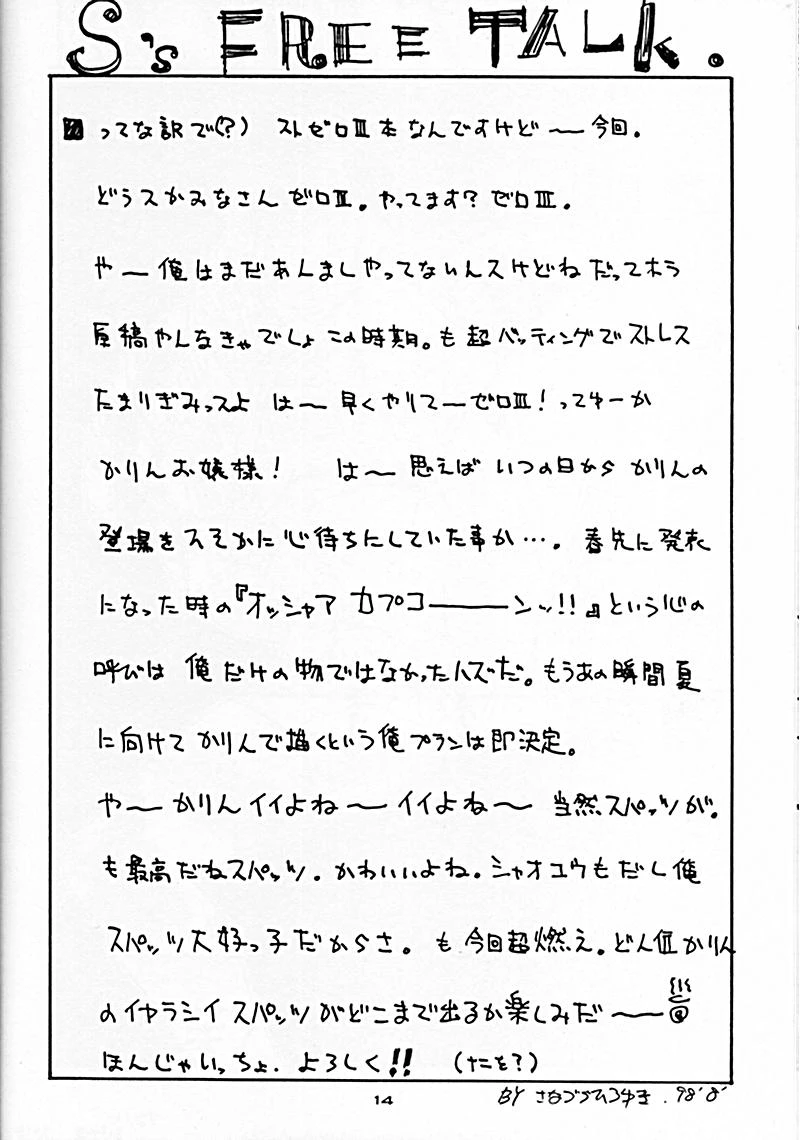 S's FREE TALK.
■ってな訳で(?) ストゼロⅢ本なんですけど〜今回。
どうスかみなさんゼロⅢ。やってます?ゼロⅢ。
や〜俺はまだあんましやってないんスけどねだってホラ
原稿やんなきゃでしょこの時期。も超バッティングでストレス
たまりぎみっスよ は〜早くやりてーゼロⅢ!ってゆーか
かりんお嬢様! は〜思えばいつの日からかりんの
登場をひそかに心待ちにしていた事か…。春先に発表
になった時の『オッシャアカプコーーーンッ!!』という心の
呼びは俺だけの物ではなかったハズだ。もうあの瞬間夏
に向けてかりんで描くという俺プランは即決定。
や〜かりんイイよね〜イイよね〜当然スパッツが。
も最高だねスパッツ。かわいいよね。シャオユウもだし俺
スパッツ大好っ子だからさ。も今回超燃え。どん位かりん
のイヤラシイスパッツがどこまで出るか楽しみだ〜
ほんじゃいっちょ.よろしく!!(ナニを?)
14
BY さなづらひろゆき.98'8'